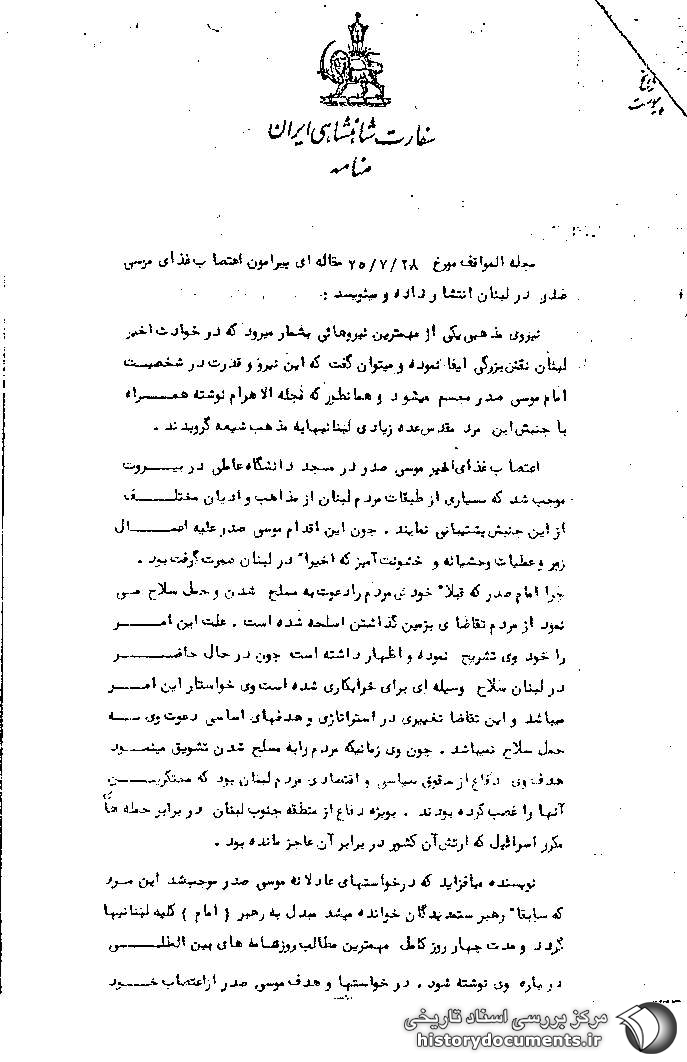 سفارت شاهنشاهی ایران
منامه
تاریخ
پیوست
مجله المواقف مورخ ۲۵/۷/۲۸ مقاله ای پیرامون اعتصاب غذای موسی
صدر در لبنان انتشار داده و مینویسد :
نیروی مذهبی یکی از مهمترین نیروهائی بشمار میرود که در حوادث اخیر
لبنان نقش بزرگی ایفا نموده و میتوان گفت که این نیرو و قدرت در شخصیت
امام موسی صدر مجسم میشود و همانطور که مجله الاهرام نوشته همراه
با جنبش این مرد مقدس عده زیادی لبنانیها به مذهب شیعه گرویدند .
اعتصاب غذای اخیر موسی صدر در مسجد دانشگاه عاملی در بیروت
موجب شد که بسیاری از طبقات مردم لبنان از مذاهب و ادیان مختلف
از این جنبش پشتیبانی نمایند . چون این اقدام موسی صدر علیه اعمال
زور و عملیات وحشیانه و خشونت آمیز که اخیرا" در لبنان صورت گرفت بود .
چرا امام صدر که قبلا" خودی مردم را دعوت به مسلح شدن و حمل سلاح می
نمود از مردم تقاضای بزمین گذاشتن اسلحه شده است . علت این امر
را خود وی تشریح نموده و اظهار داشته است چون در حال حاضر
در لبنان سلاح وسیله ای برای خرابکاری شده است وی خواستار این امر
میباشد و این تقاضا تغییری در استراتژی و هدفهای اساسی دعوت وی به
حمل سلاح نمیباشد . چون وی زمانیکه مردم را به مسلح شدن تشویق مینمود
هدف وی دفاع از حقوق سیاسی و اقتصادی مردم لبنان بود که محتکرین
آنها را غصب کرده بودند . بویژه دفاع از منطقه جنوب لبنان در برابر حمله های
مکرر اسرائیل که ارتش آن کشور در برابر آن عاجز مانده بود .
نویسنده میافزاید که درخواستهای عادلانه موسی صدر موجب شد این مرد
که سابقا" رهبر ستمدیدگان خوانده میشد مبدل به رهبر ( امام ) کلیه لبنانیها
گردد و مدت چهار روز کامل مهمترین مطالب روزنامه های بین المللی
درباره وی نوشته شود . درخواستها و هدف موسی صدر از اعتصاب خود
مرکز بررسی اسناد تاریخی
historydocuments.ir